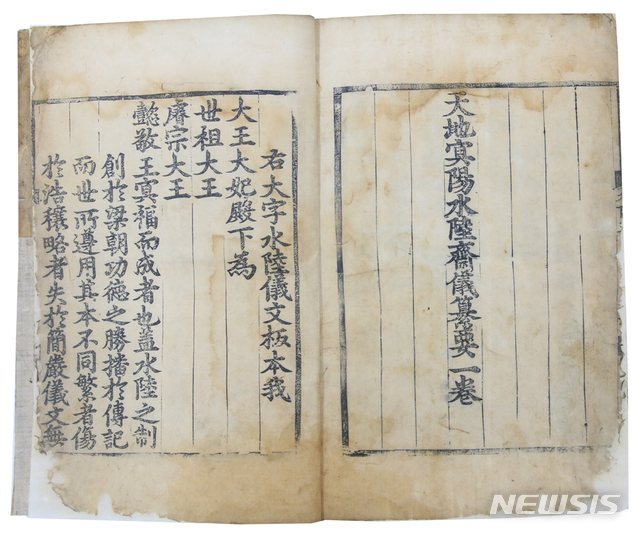 天地冥陽水陸齋儀纂要一卷
右大字水陸儀文板本我
大王大妃殿下為
世祖大王
睿宗大王
懿敬王冥福而成者也盖水陸之制
創於梁朝功德之勝播於傳記
而世所遵用其本不同繁者傷
於浩穰略者失於簡嚴儀文無
NEWSIS